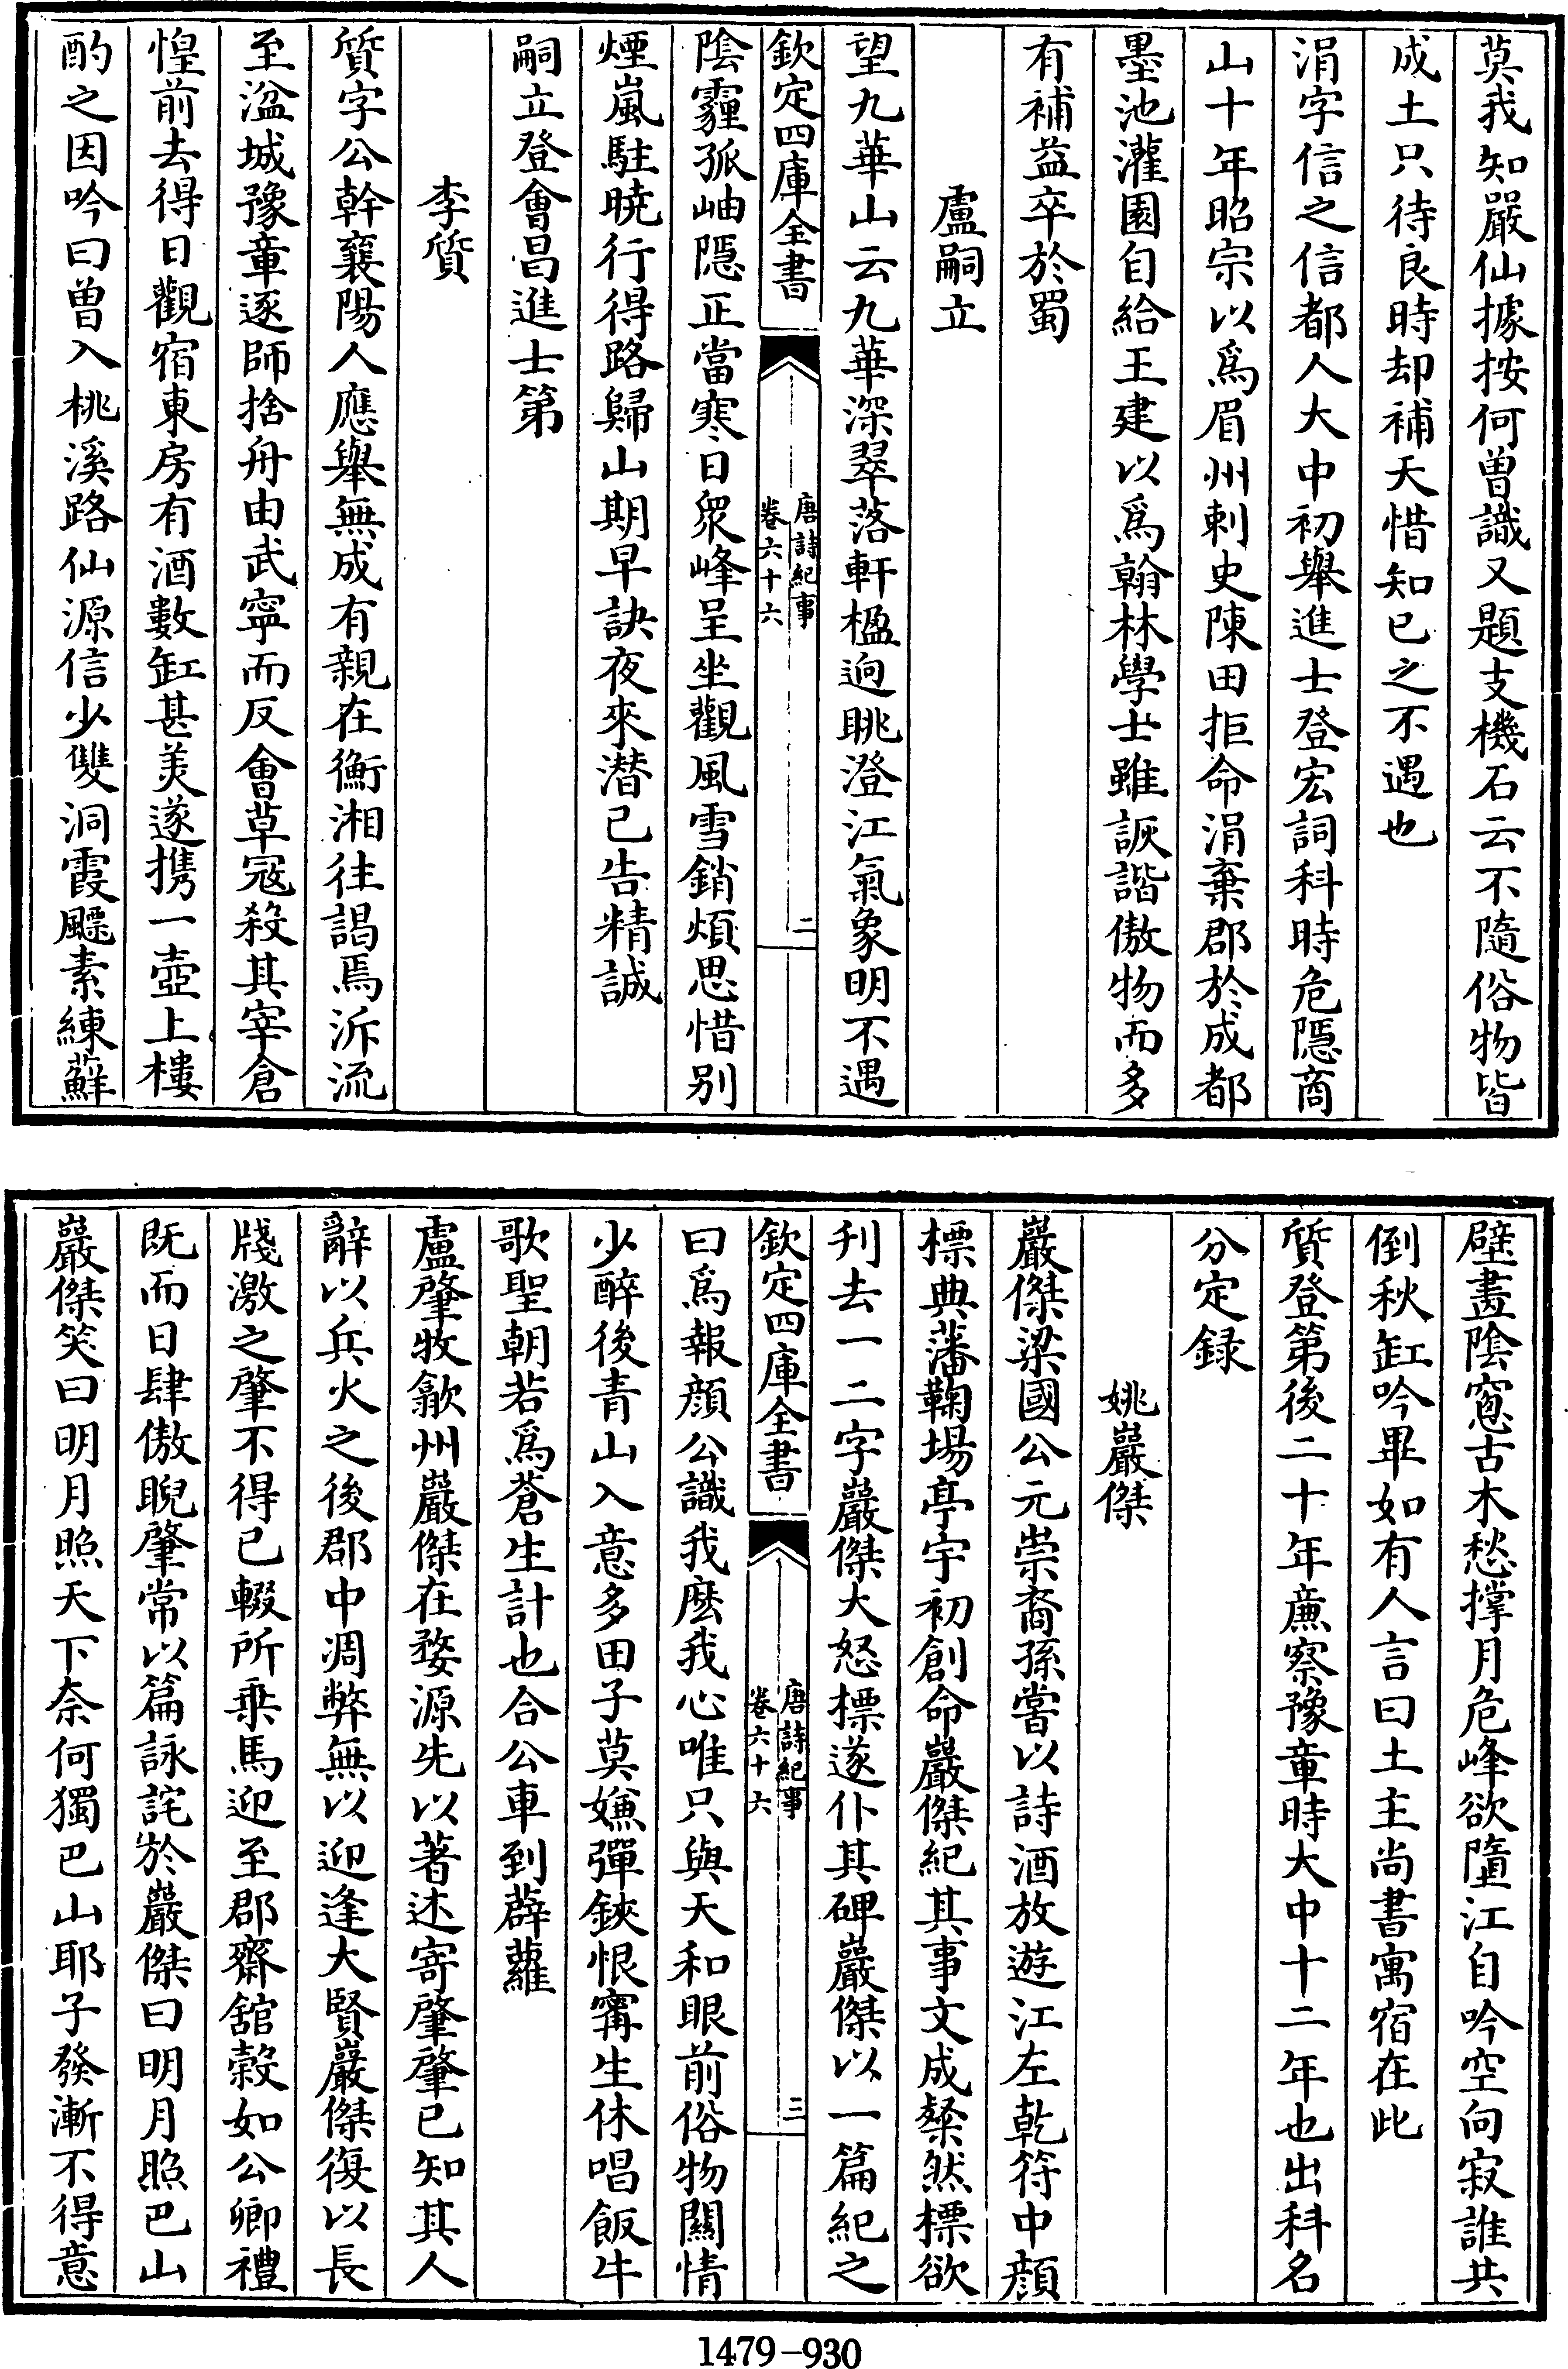 莫我知嚴仙據按何曽識又題支機石云不隨俗物皆
成土只待良時却補天惜知已之不遇也
涓字信之信都人大中初舉進士登宏詞科時危隱商
山十年昭宗以爲眉州刺史陳田拒命涓棄郡於成都
墨池灌園自給王建以爲翰林學士雖詼諧傲物而多
有補益卒於蜀
盧嗣立
望九華山云九華深翠落軒楹迥眺澄江氣象明不遇
欽定四庫全書
唐詩紀事
卷六十六
二
陰霾孤岫隱正當寒日衆峰呈坐觀風雪銷煩思惜别
煙嵐駐曉行得路歸山期早訣夜來潜已告精誠
嗣立登會昌進士第
李質
質字公幹襄陽人應舉無成有親在衡湘往謁焉泝流
至湓城豫章逐師捨舟由武寜而反會草冦殺其宰倉
惶前去得日觀宿東房有酒數缸甚羙遂携一壺上樓
酌之因吟曰曽入桃溪路仙源信少雙洞霞飃素練蘚
壁畫陰窻古木愁撑月危峰欲墮江自吟空向寂誰共
倒秋缸吟畢如有人言曰土主尚書寓宿在此
質登第後二十年亷察豫章時大中十二年也出科名
分定録
姚巖傑
巖傑梁國公元崇裔孫嘗以詩酒放遊江左乾符中顔
標典藩鞠場亭宇初創命巖傑紀其事文成粲然標欲
刋去一二字巖傑大怒標遂仆其碑巖傑以一篇紀之
欽定四庫全書
唐詩紀事
卷六十六
三
曰爲報顔公識我麽我心唯只與天和眼前俗物關情
少醉後青山入意多田子莫嫌彈鋏恨甯生休唱飯牛
歌聖朝若爲蒼生計也合公車到薜蘿
盧肇牧歙州巖傑在婺源先以著述寄肇肇已知其人
辭以兵火之後郡中凋弊無以迎逢大賢巖傑復以長
牋激之肇不得已輟所乗馬迎至郡齋舘榖如公卿禮
既而日肆傲睨肇常以篇詠詫於巖傑曰明月照巴山
巖傑笑曰明月照天下奈何獨巴山耶子發漸不得意
1479-930